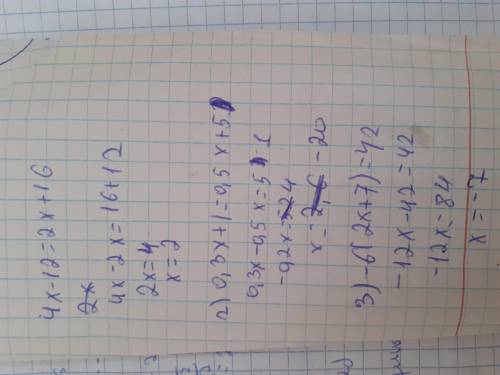 4x-12=2x+16
2x
4x-2x=16+12
2x=4
x=2
2) 0,3x+1=0,5x+5
0,3x-0,5x=5-1
-0,2x=4
x=-20
3) -6(2x+7)=42
-12x-42=42
-12x=84
x=-7